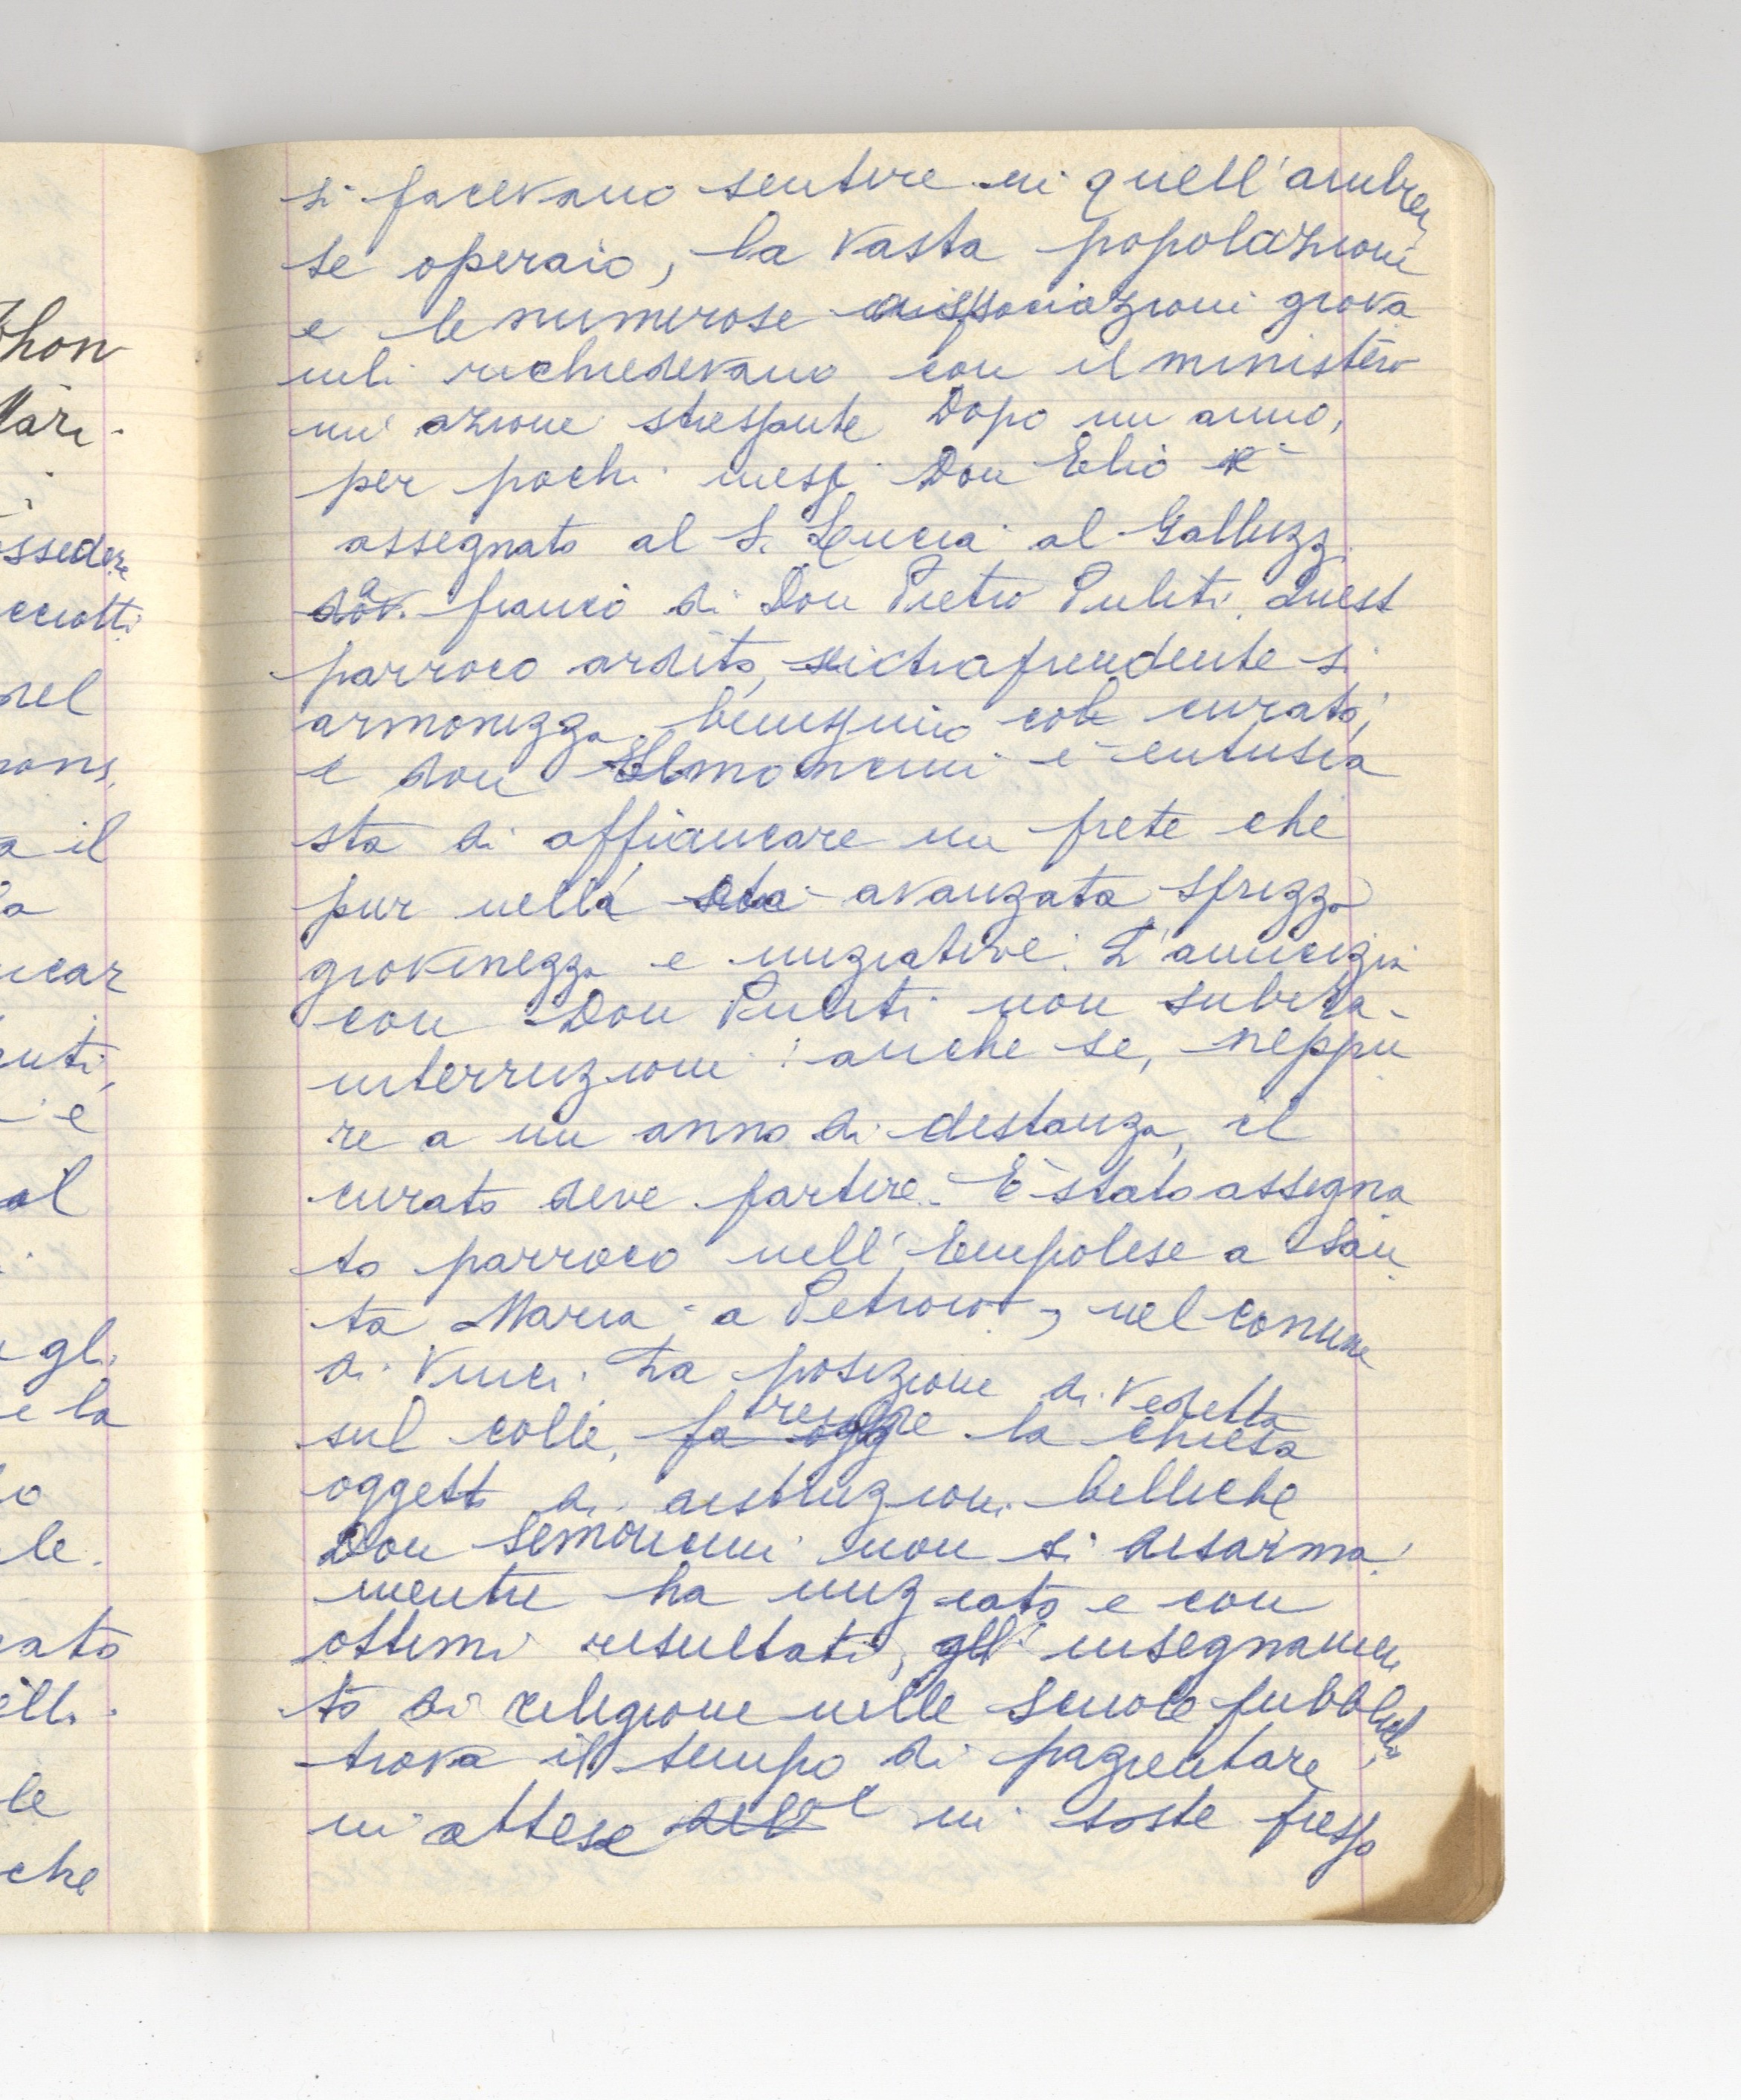 si facevano sentire in quell'ambien
te operaio, la vasta popolazione
e le numerose associazioni giova
nili richiedevano con il ministero
un'azione stressante Dopo un anno,
per pochi mesi Don Elio è
assegnato al S. Lucia al Galluzz
a fianco di Don Pietro Puliti. Quest
parroco ardito, intraprendente si
armonizza benissimo col curato,
e don Simoncini è entusia
sta di affiancare un prete che
pur nella età avanzata sprizza
giovinezza e iniziative. L'amicizia
con Don Puliti non subirà
interruzioni anche se, neppu
re a un anno di distanza, il
curato deve partire. È stato assegna
to parroco nell'Empolese a San
ta Maria a Petroio, nel comune
di Vinci. La posizione di vedetta
sul colle, rese la chiesa
oggetto di distruzioni belliche
Don Simoncini non si disarma
mentre ha iniziato e con
ottimi risultati, gli insegnamen
to di religione nelle scuole pubbliche
trova il tempo di pazientare
in attese e in soste presso
thon
Mari-
ossedere
cciotti
nel
a il
la
icar
enti,
è
al
gli
e la
lo
le.
cato
illi.
le
che